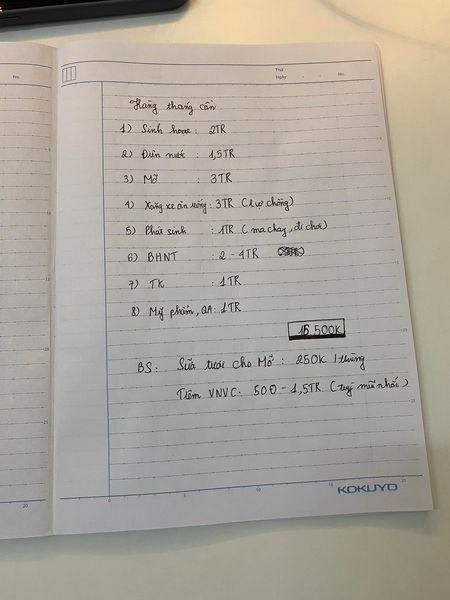 Thứ
No.
Ngày . . No.
Hàng tháng cần
1) Sinh hoạt : 2TR
2) Điện nước : 1,5TR
3) Mỡ : 3TR
4) Xăng xe ăn uống : 3TR (2 vợ chồng)
5) Phát sinh : 1TR (ma chay, đi chơi)
6) BHNT : 2 - 4TR
7) TK : 1TR
8) Mỹ phẩm, QA : 1TR
15.500K
BS : Sữa tươi cho Mỡ : 250K / thùng
Tiêm VNVC : 500 - 1,5TR (tuỳ mũi nhắc)
KOKUYO